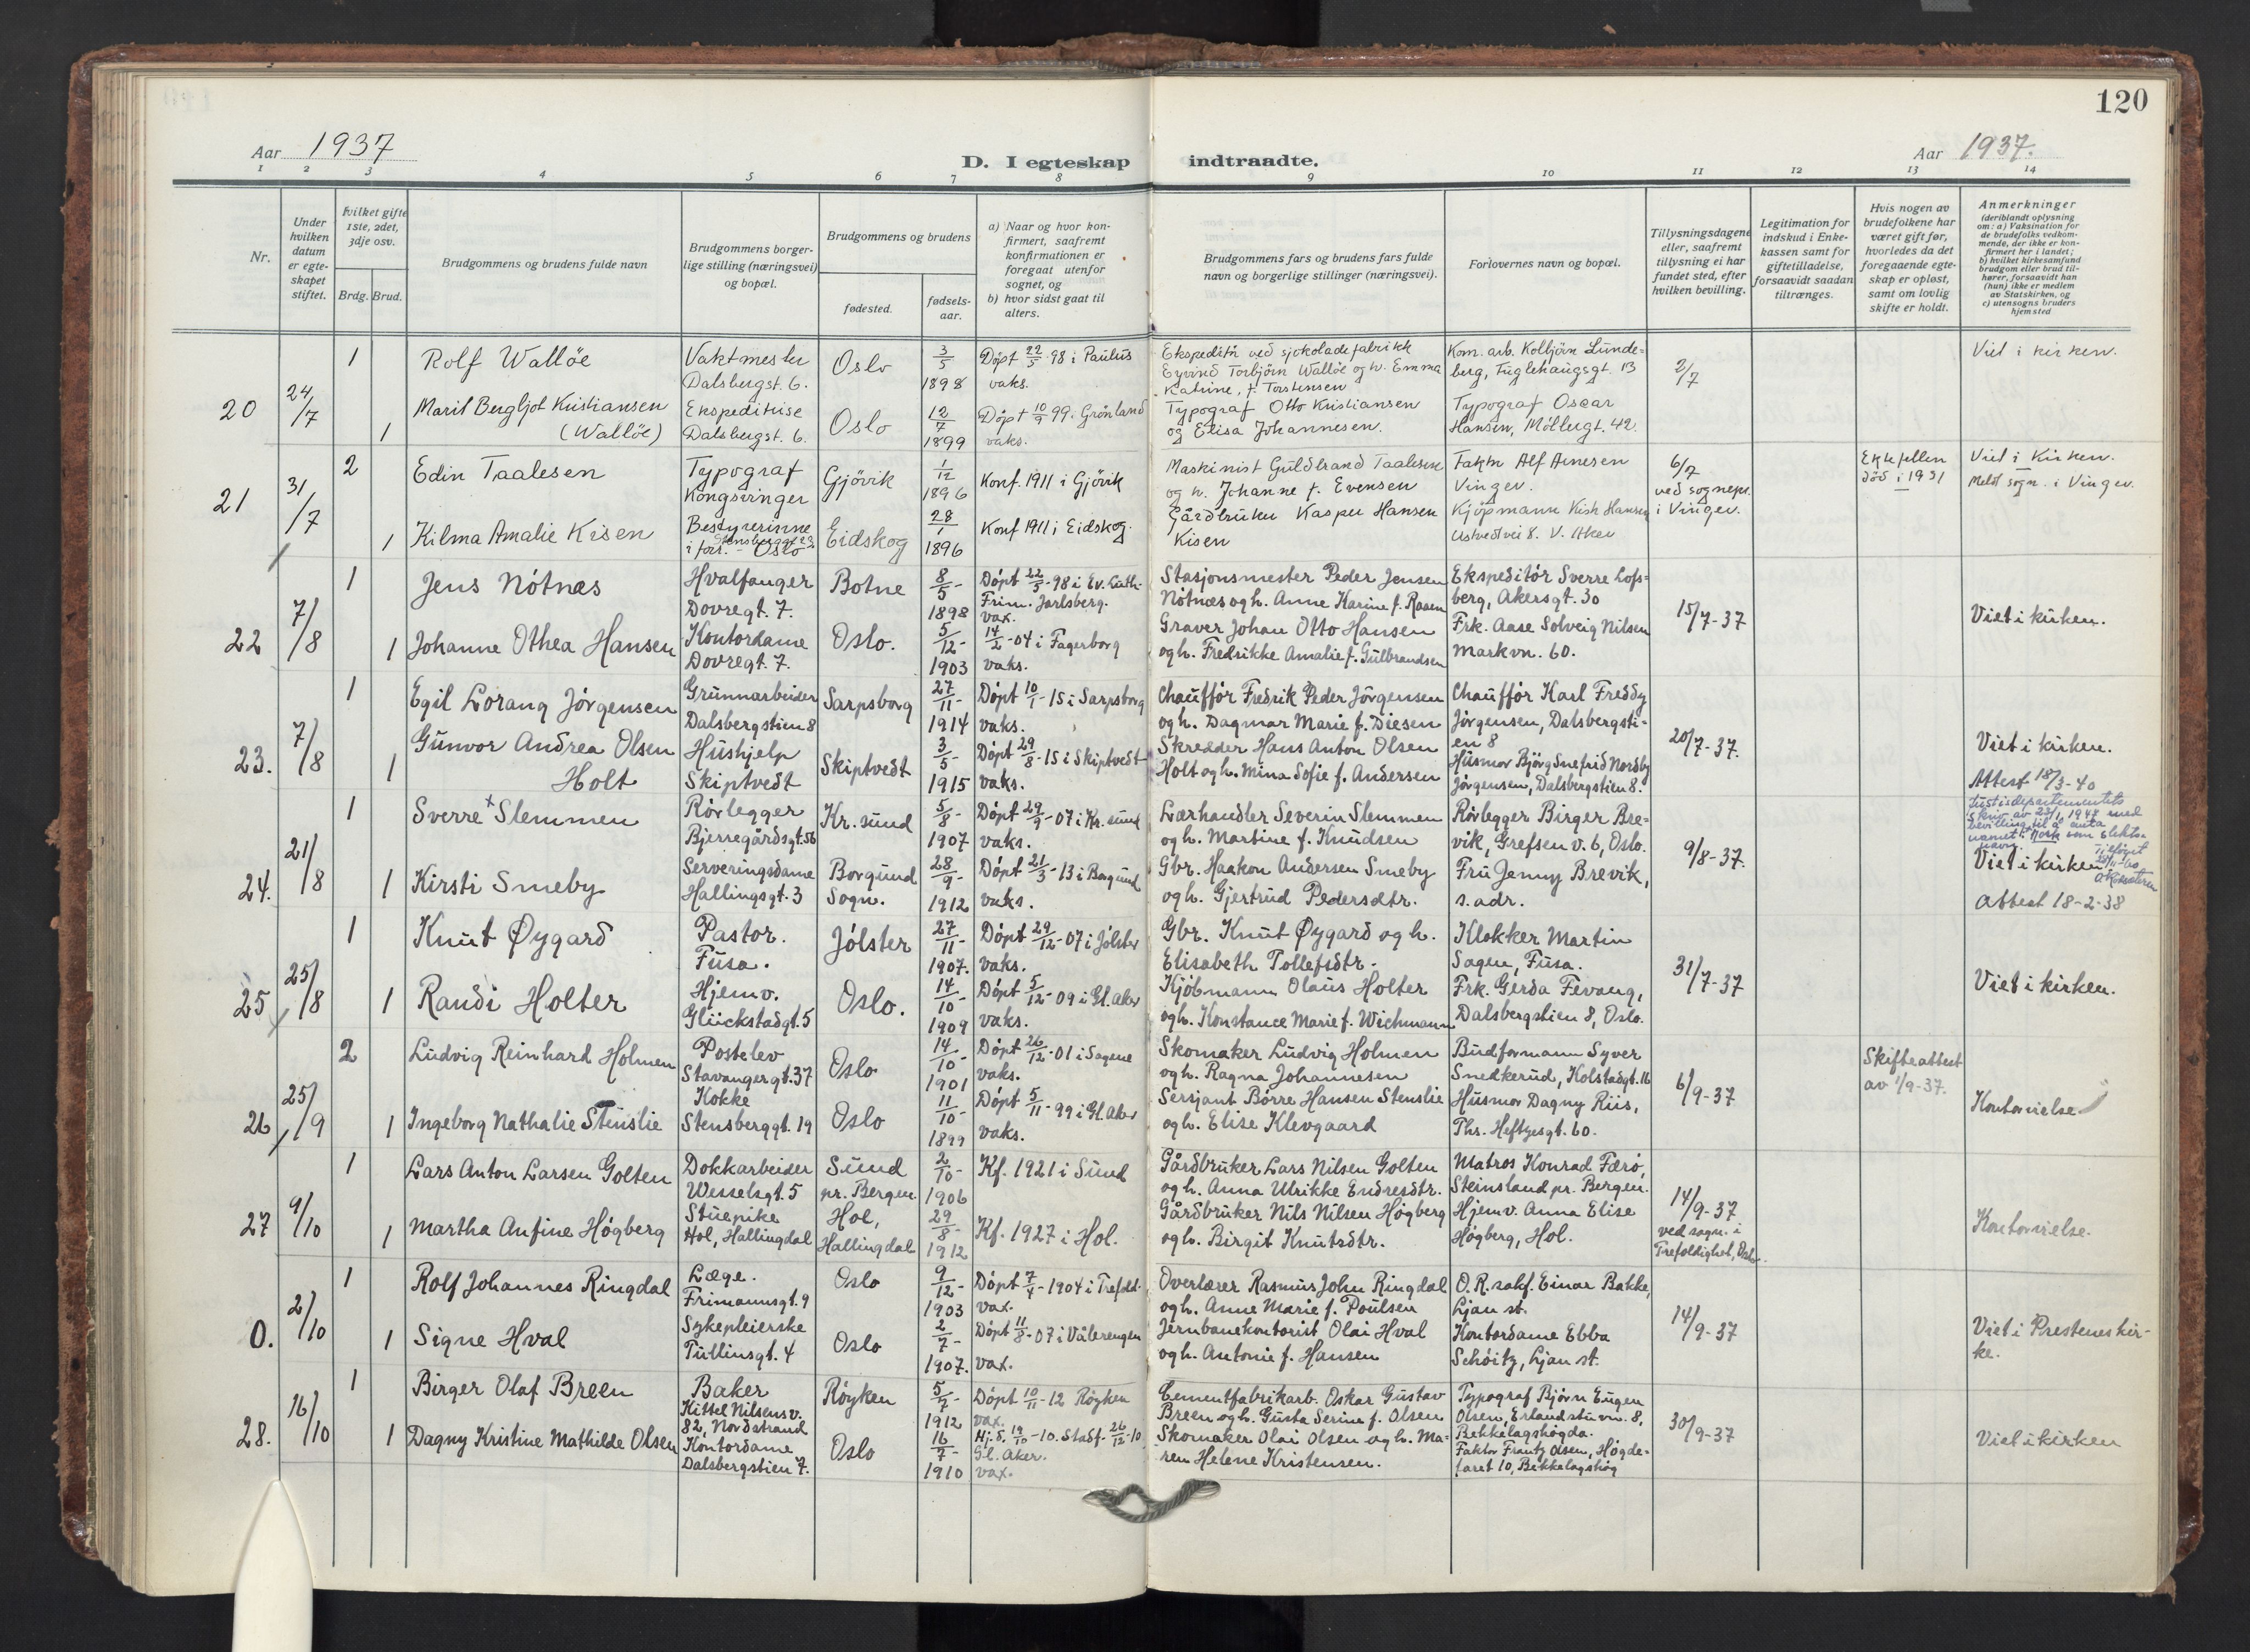 120
Aar 1937
D. I egteskap indtraadte.
Aar 1937.
1 2 3 4 5 6 7 8 9 10 11 12 13 14
Nr.
Under hvilken datum er egteskapet stiftet.
hvilket gifte 1ste, 2det, 3dje osv.
Brdg. Brud.
Brudgommens og brudens fulde navn
Brudgommens borgerlige stilling (næringsvei) og bopæl.
Brudgommens og brudens
fødested.
fødselsaar.
a) Naar og hvor konfirmert, saafremt konfirmationen er foregaat utenfor sognet, og
b) hvor sidst gaat til alters.
Brudgommens fars og brudens fars fulde navn og borgerlige stillinger (næringsvei).
Forlovernes navn og bopæl.
Tillysningsdagene eller, saafremt tillysning ei har fundet sted, efter hvilken bevilling.
Legitimation for indskud i Enkekassen samt for giftetilladelse, forsaavidt saadan tiltrænges.
Hvis nogen av brudefolkene har været gift før, hvorledes da det foregaaende egteskap er opløst, samt om lovlig skifte er holdt.
Anmerkninger
(deriblandt oplysning om: a) Vaksination for de brudefolks vedkommende, der ikke er konfirmert her i landet; b) hvilket kirkesamfund brudgom eller brud tilhører, forsaavidt han (hun) ikke er medlem av Statskirken, og c) utensogns bruders hjemsted
20 24/7 1 Rolf Walløe Vaktmester Dalsbergst. 6. Oslo 3/5 1898 Døpt 22/5 98 i Paulus vaks. Ekspeditør ved sjokoladefabrikk Eyvind Torbjörn Walløe og h. Emma Katrine, f. Torstensen Kom. arb. Kolbjörn Lundeberg, Fuglehaugsgt. 13 2/7 Viet i kirken.
1 Marit Bergljot Kristiansen (Walløe) Ekspeditrise Dalsbergst. 6. Oslo 12/7 1899 Døpt 10/9 99 i Grønland vaks. Typograf Otto Kristiansen og Elisa Johannesen. Typograf Oscar Hansen, Möllergt. 42.
21 31/7 2 Edin Taalesen Typograf Kongsvinger Gjövik 1/12 1896 Konf. 1911 i Gjövik Maskinist Guldbrand Taalesen og h. Johanne f. Evensen Faktor Alf Arnesen Vinger. 6/7 ved sognepr. i Vinger. Ektefellen död i 1931 Viet i Kirken. Meldt sogn. i Vinger.
1 Kilma Amalie Kisen Bestyrerinne i forr. Stensberggt 23 - Oslo Eidskog 28/1 1896 Konf 1911 i Eidskog. Gårdbruker Kasper Hansen Kisen Kjöpmann Krish Hansen Ustvedtvei 8. V. Aker
22 7/8 1 Jens Nötnæs Hvalfanger Dovregt. 7. Botne 8/5 - 1898 Döpt 22/5 - 98 i Ev. Luth. Frim. Jarlsberg. vax. Stasjonsmester Peder Jensen Nötnæs og h. Anne Karine f. Raaen Ekspeditör Sverre Lofsberg, Akersgt. 30 15/7-37 Viet i kirken.
1 Johanne Othea Hansen Kontordame Dovregt. 7. Oslo. 5/12 - 1903 14/2 - 04 i Fagerborg vaks. Graver Johan Otto Hansen og h. Fredrikke Amalie f. Gulbrandsen Frk. Aase Solveig Nilsen Markvn. 60.
23. 7/8 1 Egil Lorang Jörgensen Grunnarbeider Dalsbergstien 8 Sarpsborg 27/11 - 1914 Döpt 10/1 - 15 i Sarpsborg vaks. Chaufför Fredrik Peder Jörgensen og h. Dagmar Marie f. Diesen Chaufför Karl Freddy Jörgensen, Dalsbergstien 8 20/7-37. Viet i kirken.
1 Gunvor Andrea Olsen Holt Hushjelp Skiptvedt Skiptvedt 3/5 - 1915 Döpt 29/8 - 15 i Skiptvedt vaks. Skredder Hans Anton Olsen Holt og h. Mina Sofie f. Andersen Husmor Björg Snefrid Nordby Jörgensen, Dalsbergstien 8. Attest 18/3-40
24. 21/8 1 Sverre + Slemmen Rörlegger Bjerregårdsgt. 56 Kr. sund 5/8 - 1907 Döpt 29/9 - 07 i Kr. sund vaks. Lærhandler Severin Slemmen og h. Martine f. Knudsen Rörlegger Birger Brevik, Grefsen v. 6, Oslo. 9/8-37. Justisdepartementets skriv av 1947 med bevilling til å anta navnet + som slektsnavn. Viet i kirken. Tilföiet
1 Kirsti Smeby Serveringsdame Hallingsgt. 3 Borgund Sogn. 28/9 - 1912 Döpt 21/3 - 13 i Borgund vaks. Gbr. Haakon Andersen Smeby og h. Gjertrud Pedersdtr. Fru Jenny Brevik, s. adr. Attest 18-2-38
25 25/8 1 Knut Øygard Pastor. Fusa. Jölster 27/11 - 1907. Döpt 29/12 - 07 i Jölster vaks. Gbr. Knut Øygard og h. Elisabeth Tollefsdtr. Klokker Martin Sagen, Fusa. 31/7-37 Viet i kirken.
1 Randi Holter Hjemv. Glückstadgt. 5 Oslo. 14/10 - 1909 Döpt 5/12 - 09 i Gl. Aker vaks. Kjöbmann Olaus Holter og h. Konstance Marie f. Wichmann Frk. Gerda Fevang, Dalsbergstien 8, Oslo.
26 25/9 2 Ludvig Reinhard Holmen Postelev Stavangergt. 37 Oslo 14/10 - 1901 Döpt 26/12 - 01 i Sagene vaks. Skomaker Ludvig Holmen og h. Ragna Johannesen Budformann Syver Snedkerud, Kolstadgt. 16 6/9-37 Skifteattest av 1/9-37. Kontorvielse
1 Ingeborg Nathalie Stenslie Kokke Stensberggt. 19 Oslo 11/10 - 1899 Döpt 5/11 - 99 i Gl. Aker vaks. Sersjant Börre Hansen Stenslie og h. Elise Klevgaard Husmor Dagny Riis, Ths. Heftyesgt. 60.
27 9/10 1 Lars Anton Larsen Golten Dokkarbeider Wesselsgt. 5 Sund pr. Bergen 2/10 - 1906 Kf. 1921 i Sund Gårdbruker Lars Nilsen Golten og h. Anna Ulrikke Endresdtr. Matros Konrad Færö, Steinsland pr. Bergen. 14/9-37 ved sogn. i Trefoldighet, Oslo. Kontorvielse.
1 Martha Anfine Högberg Stuepike Hol, Hallingdal Hol, Hallingdal 29/8 - 1912 Kf. 1927 i Hol. Gårdbruker Nils Nilsen Högberg og h. Birgit Knutsdtr. Hjemv. Anna Elise Högberg, Hol.
0. 2/10 1 Rolf Johannes Ringdal Læge. Frimannsgt. 9 Oslo 9/12 - 1903 Döpt 7/4 - 1904 i Trefold. vax. Overlærer Rasmus John Ringdal og h. Anne Marie f. Poulsen O. R. sakf. Einar Bakke, Ljan st. 14/9-37 Viet i Presteneskirke.
1 Signe Hval Sykepleierske Tullinsgt. 4 Oslo 2/7 - 1907. Döpt 11/8 - 07 i Vålerengen vax. Jernbanekontorist Olai Hval og h. Antonie f. Hansen Kontordame Ebba Schöitz, Ljan st.
28. 16/10 1 Birger Olaf Breen Baker Kittel Nilsens v. 82, Nordstrand Röyken 5/7 - 1912 Döpt 10/11 - 12 Röyken vax. Cementfabrikarb. Oskar Gustav Breen og h. Gusta Serine f. Olsen Typograf Björn Eugen Olsen, Erlandstuvn. 8, Bekkelagshögda. 30/9-37 Viet i kirken
1 Dagny Kristine Mathilde Olsen Kontordame Dalsbergstien 7. Oslo 16/7 - 1910 Hj. d. 19/10 - 10. Stadf. 26/12 - 10 Gl. Aker. vax. Skomaker Olai Olsen og h. Maren Helene Kristensen. Faktor Frantz Olsen, Högdefaret 10, Bekkelagshög